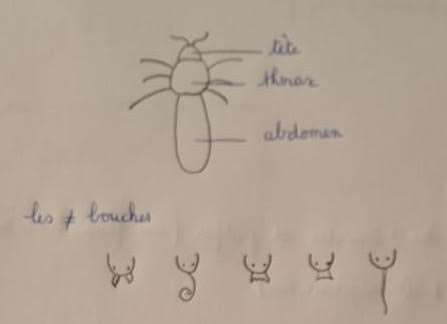 tête
thorax
abdomen
les ≠ bouches